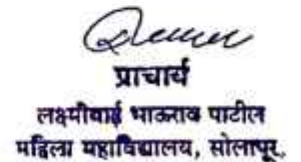 प्राचार्य
लक्ष्मीबाई भाऊराव पाटील
महिला महाविद्यालय, सोलापूर.